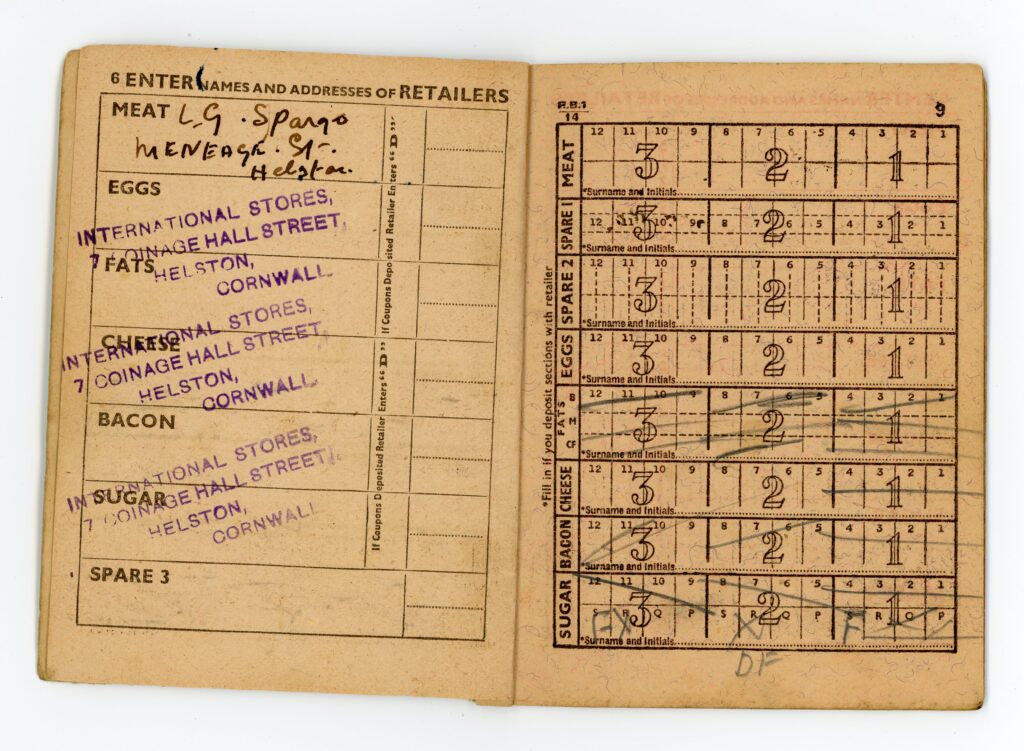 6 ENTER NAMES AND ADDRESSES OF RETAILERS
MEAT L.G. Spargo
MENEAGE. St.
Helston.
EGGS
INTERNATIONAL STORES,
7 COINAGE HALL STREET,
HELSTON,
CORNWALL
FATS
CHEESE
INTERNATIONAL STORES,
7 COINAGE HALL STREET,
HELSTON,
CORNWALL
BACON
SUGAR
INTERNATIONAL STORES,
7 COINAGE HALL STREET,
HELSTON,
CORNWALL
SPARE 3
If Coupons Deposited Retailer Enters "D"
If Coupons Deposited Retailer Enters "D"
R.B.1
14
9
*Fill in if you deposit sections with retailer
MEAT
12 11 10 9 8 7 6 5 4 3 2 1
3 2 1
*Surname and Initials
SPARE 1
12 11 10 9 8 7 6 5 4 3 2 1
3 2 1
*Surname and Initials
SPARE 2
12 11 10 9 8 7 6 5 4 3 2 1
3 2 1
*Surname and Initials
EGGS
12 11 10 9 8 7 6 5 4 3 2 1
3 2 1
*Surname and Initials
FATS
B 12 11 10 9 8 7 6 5 4 3 2 1
M
C
3 2 1
*Surname and Initials
CHEESE
12 11 10 9 8 7 6 5 4 3 2 1
3 2 1
*Surname and Initials
BACON
12 11 10 9 8 7 6 5 4 3 2 1
3 2 1
*Surname and Initials
SUGAR
12 11 10 9 8 7 6 5 4 3 2 1
3 2 1
S R Q P S R Q P S R Q P
X F
*Surname and Initials
DF